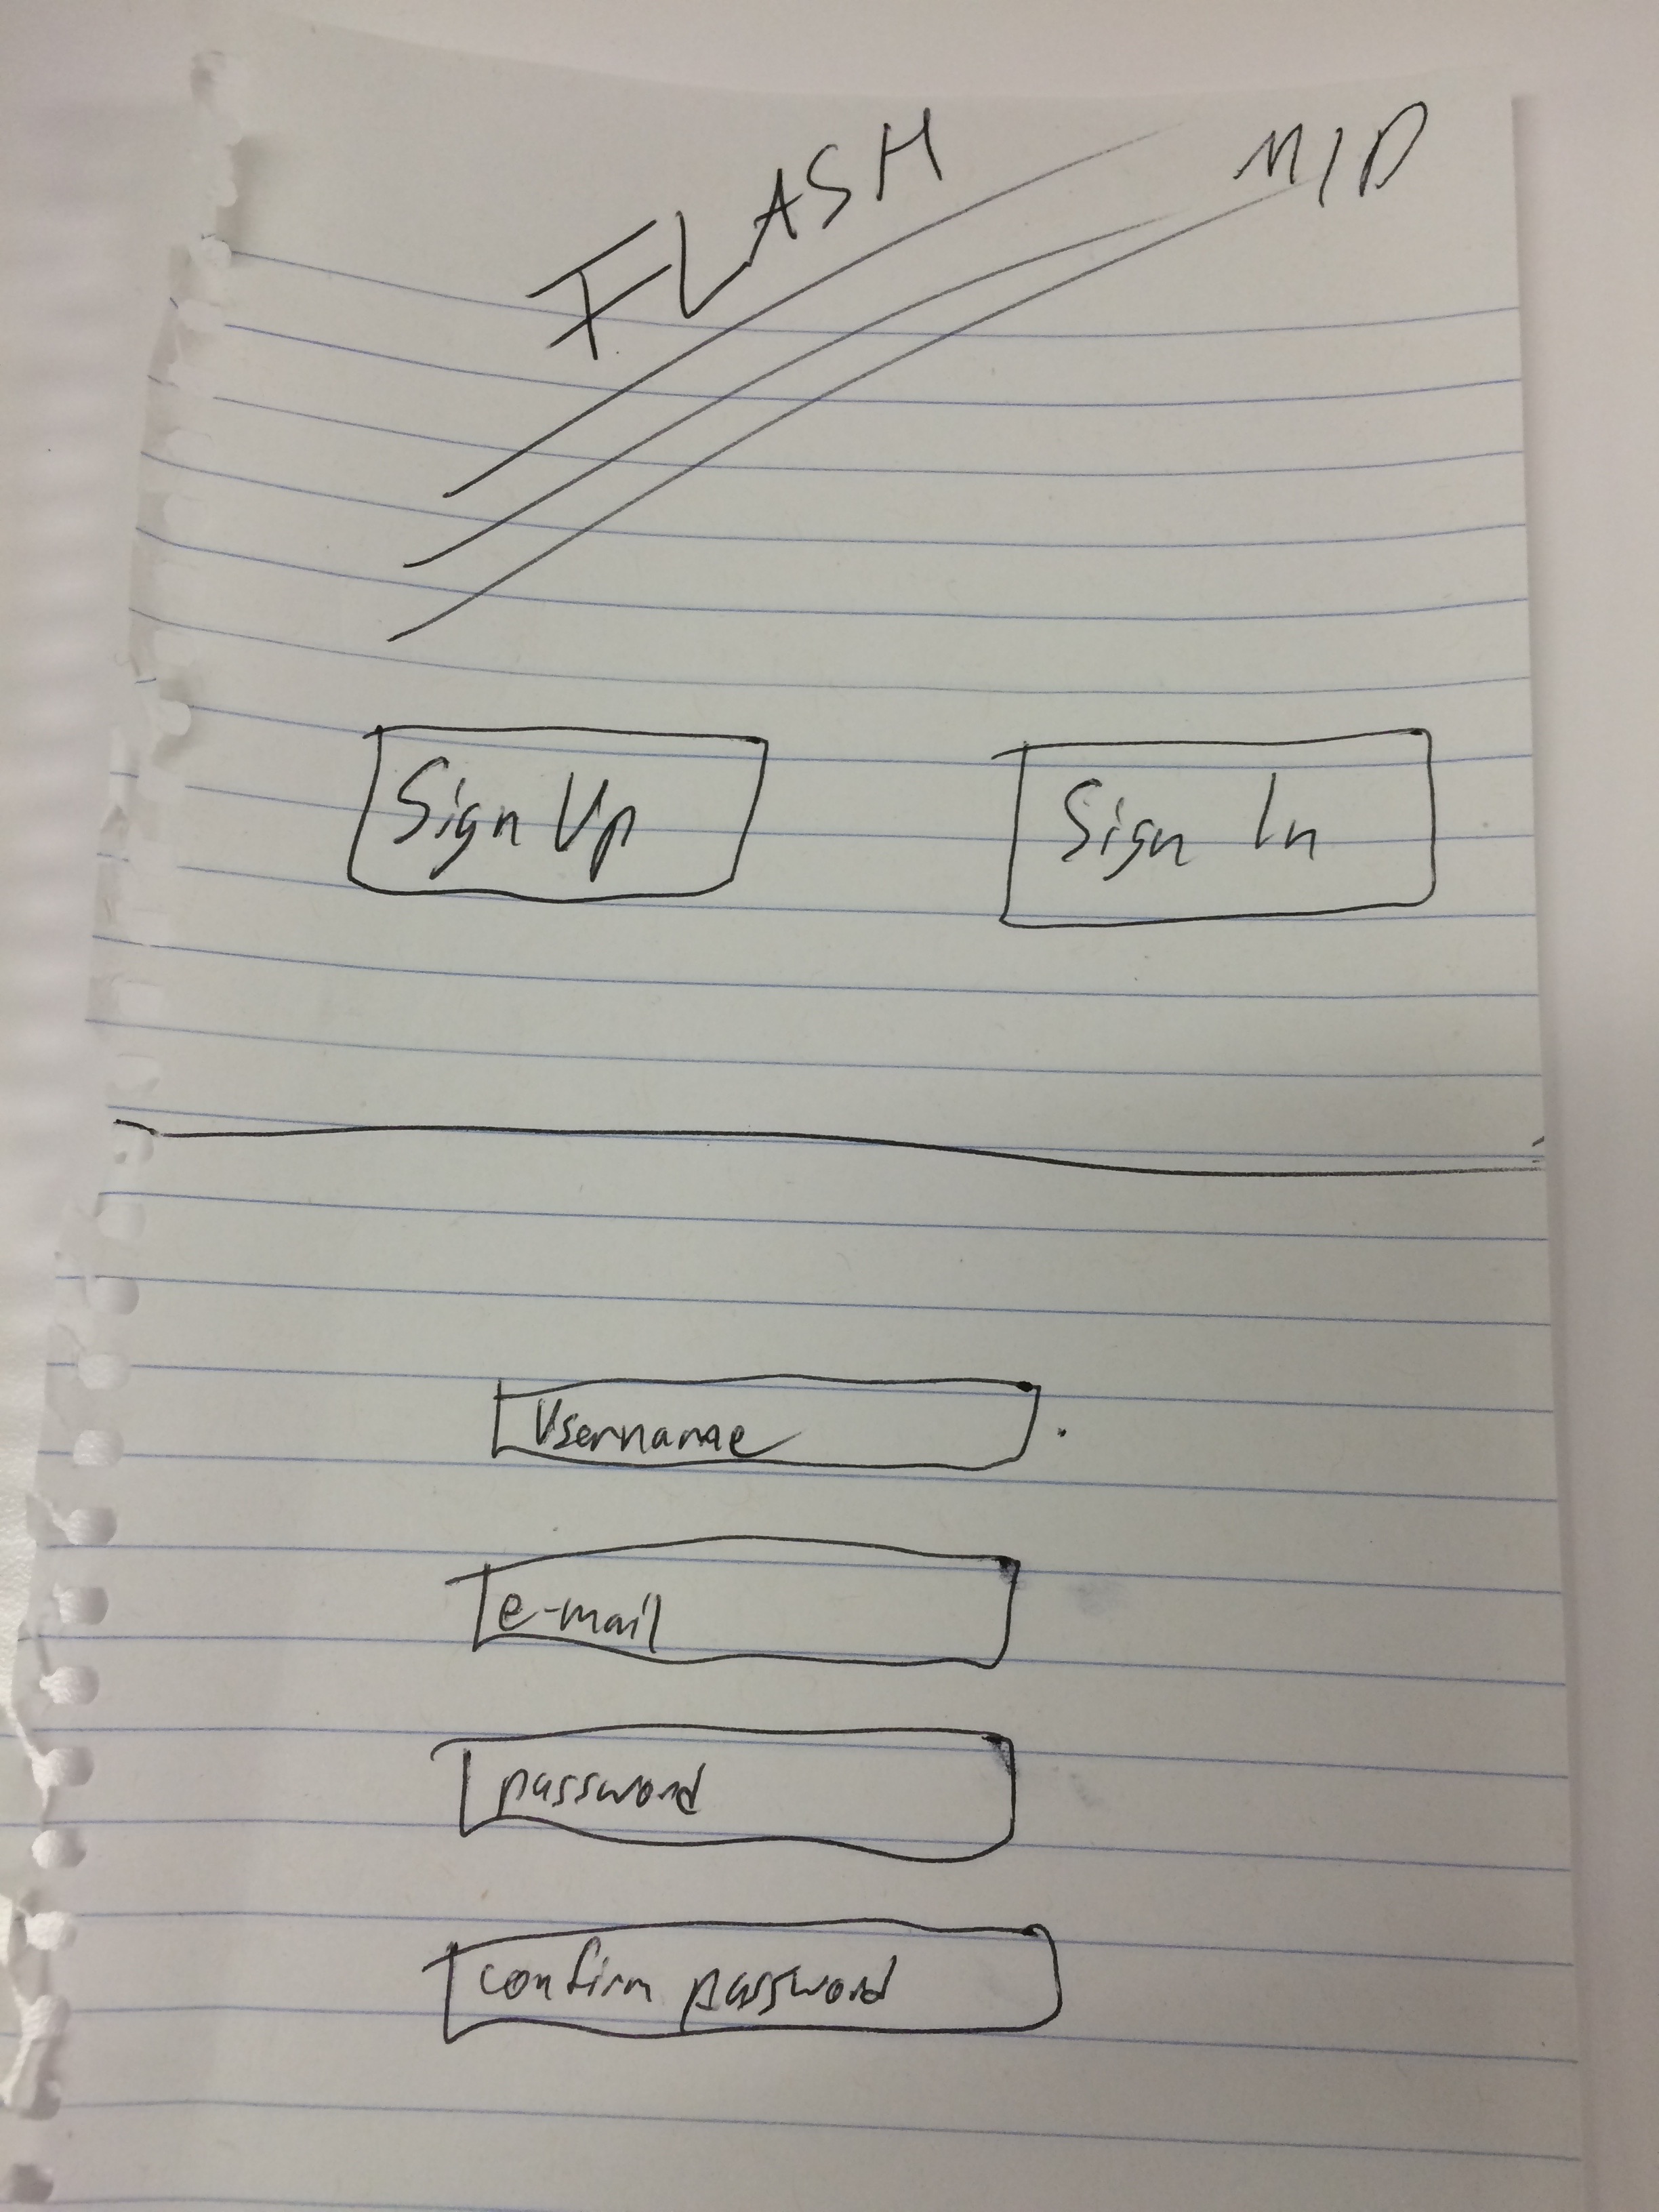 FLASH
MID
Sign Up
Sign In
Username
e-mail
password
confirm password